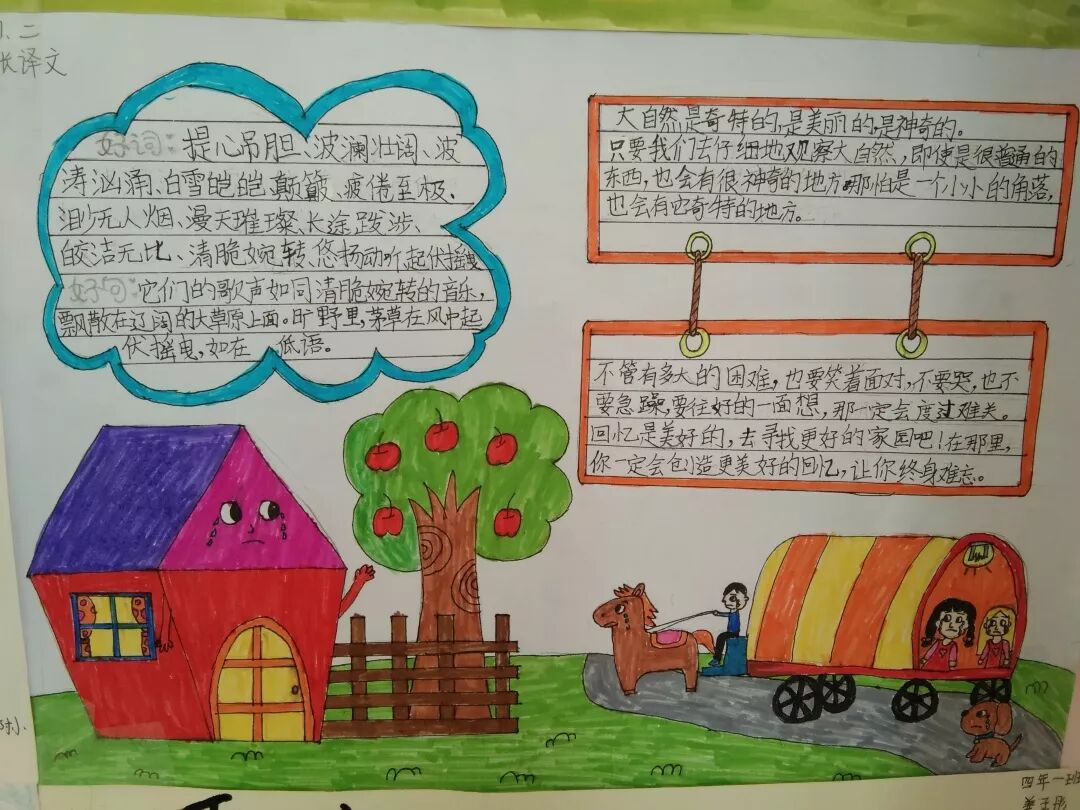 1、二
张译文
好词：提心吊胆、波澜壮阔、波
涛汹涌、白雪皑皑、颠簸、疲倦至极、
渺无人烟、漫天璀璨、长途跋涉、
皎洁无比、清脆婉转、悠扬动听、起伏摇曳
好句：它们的歌声如同清脆婉转的音乐，
飘散在辽阔的大草原上面。旷野里，茅草在风中起
伏摇曳，如在 低语。
大自然是奇特的，是美丽的，是神奇的。
只要我们去仔细地观察大自然，即使是很普通的
东西，也会有很神奇的地方。哪怕是一个小小的角落，
也会有它奇特的地方。
不管有多大的困难，也要笑着面对，不要哭，也不
要急躁，要往好的一面想，那一定会度过难关。
回忆是美好的，去寻找更好的家园吧！在那里，
你一定会创造更美好的回忆，让你终身难忘。
四年一班